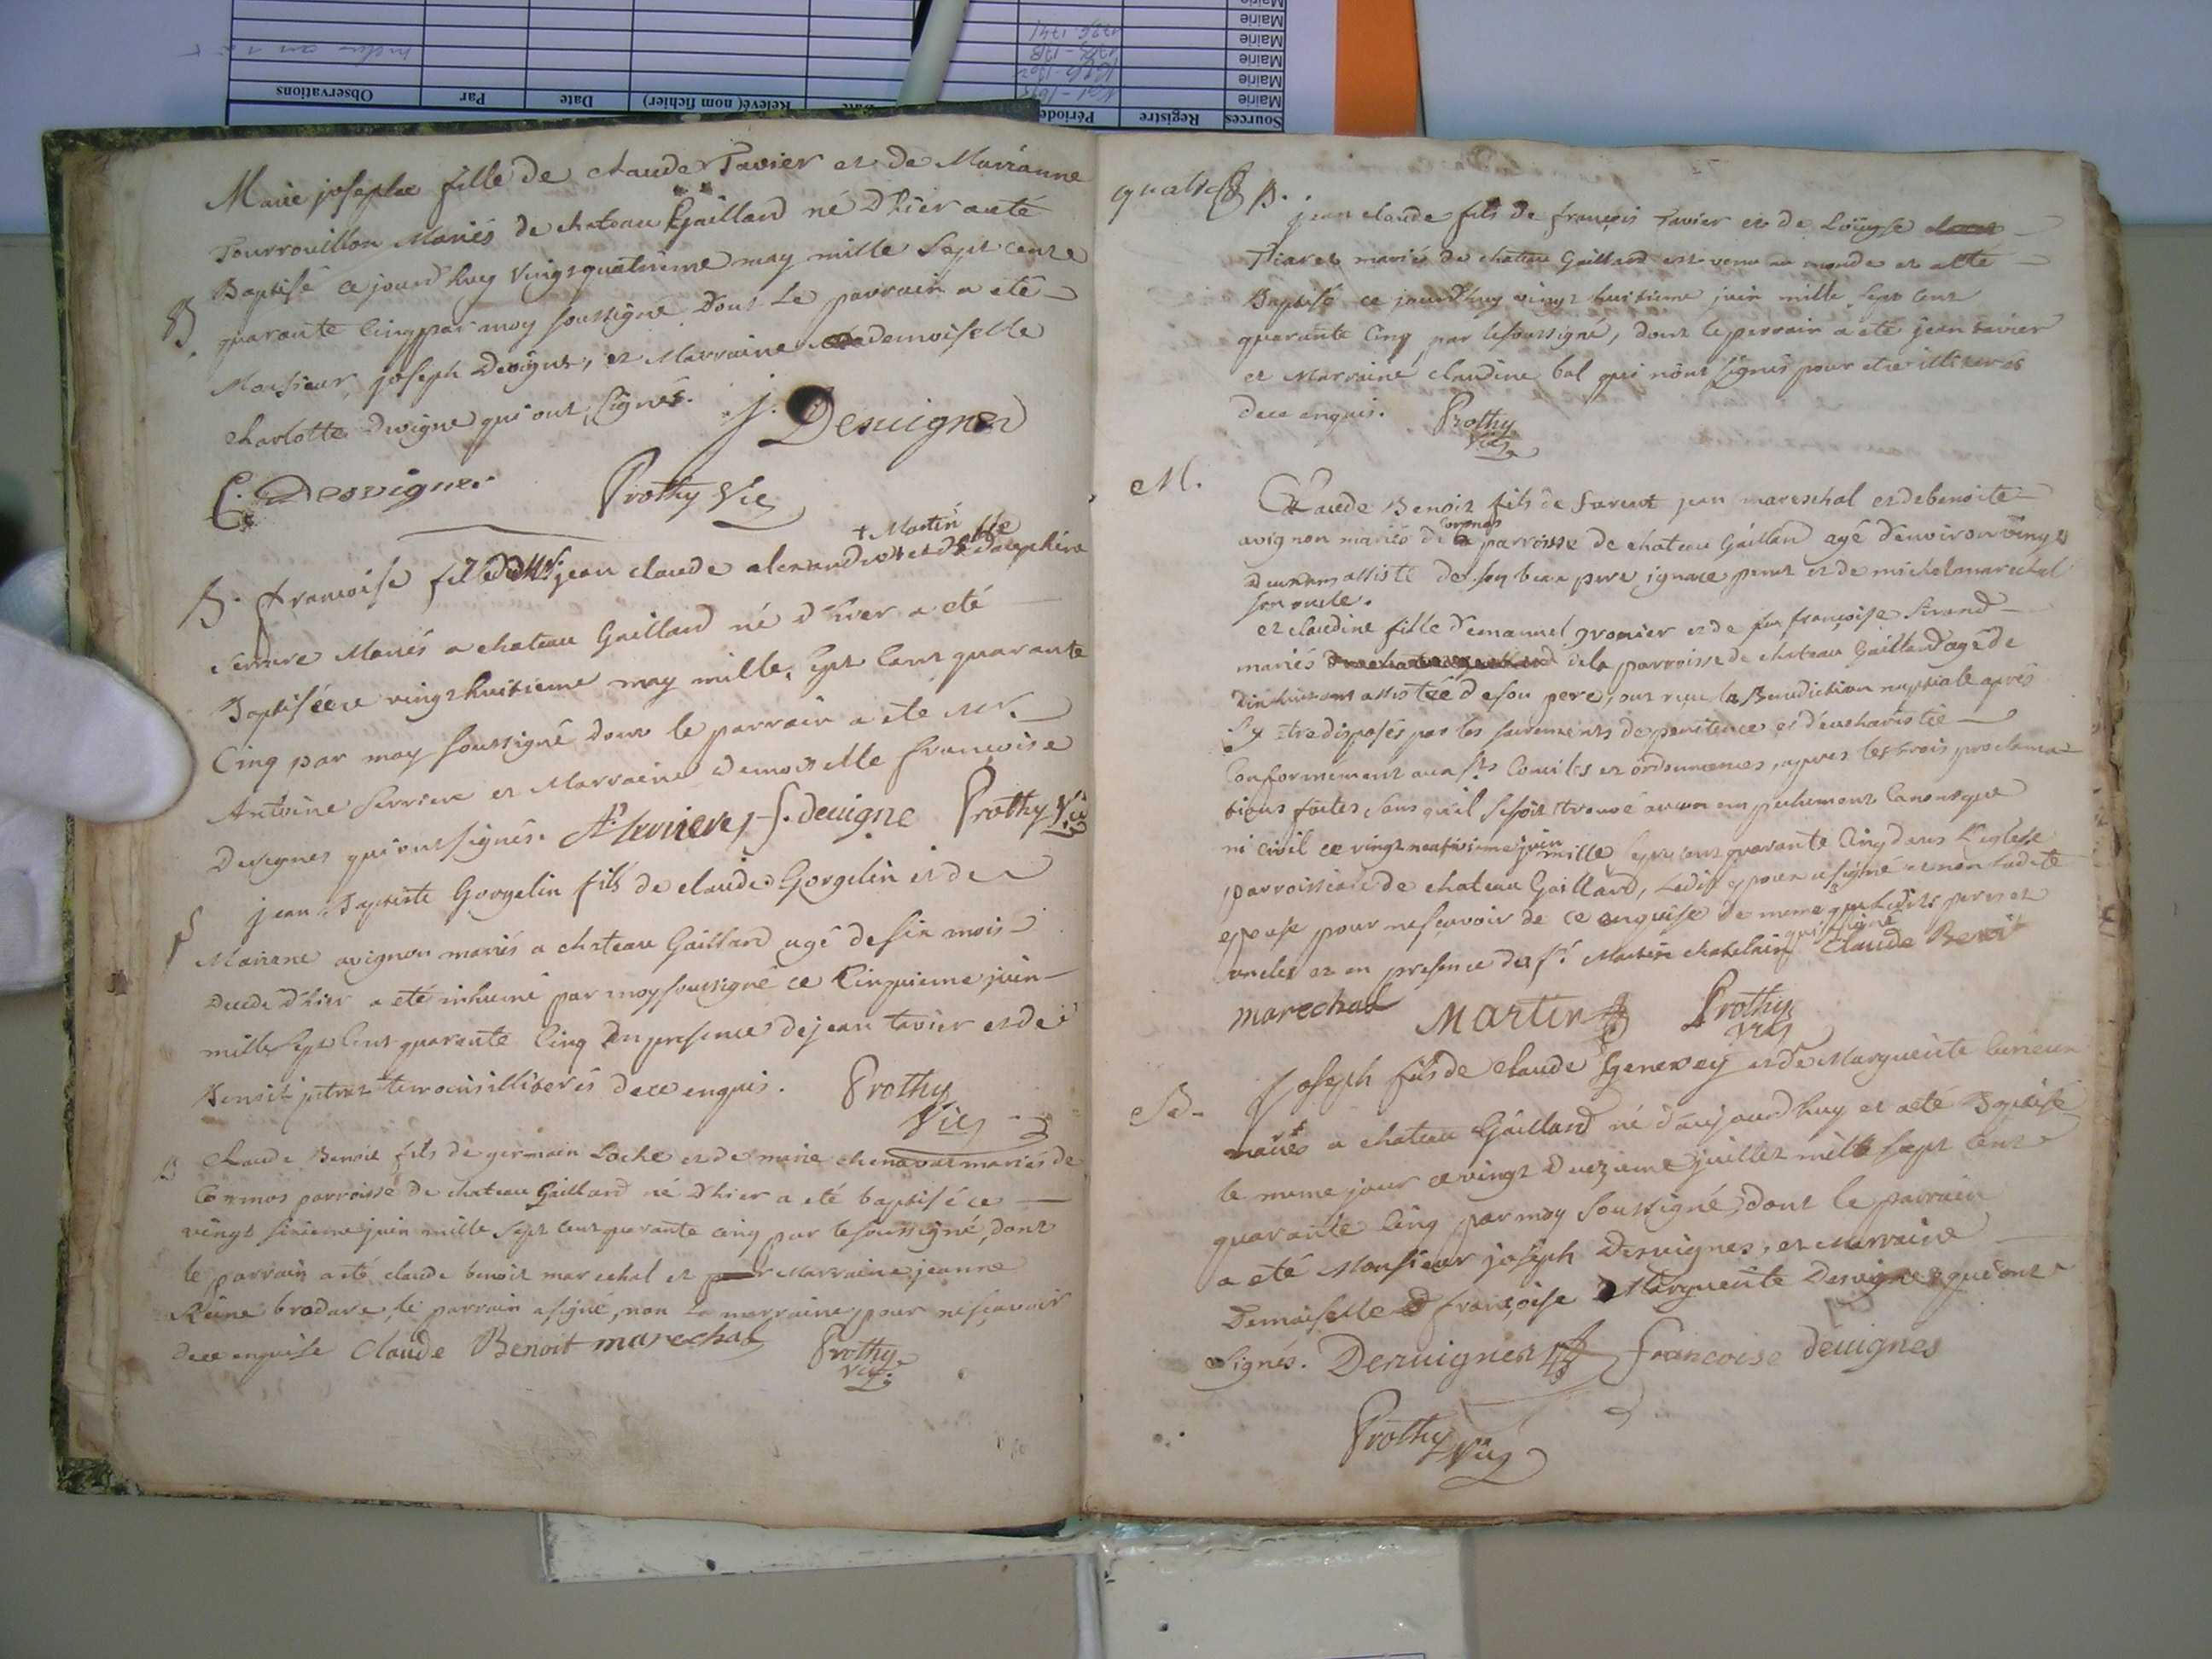 Sources Registre Période Date Relevé( nom fichier) Date Par Observations
Mairie
Mairie
Mairie
Mairie
Mairie
Marie josephe fille de claude Tavier et de Marianne
Tourrouillon Mariés de chateau Gaillard né D'hier a eté
B Baptisé ce jourd'huy vingt quatrieme may mille Sept cent
quarante Cinq par moy soussigné Dont Le parrain a eté
Monsieur joseph Devigne, et Marraine Mademoiselle
charlotte Devigne qui ont Signés. j. Desvignes
C. Desvignes Prothy Vic
+ Martin
B. francoise fille de Mr jean claude alexandre et de dauphine
Serriere Mariés a chateau Gaillard né d'hier a eté
Baptisée ce vingt huitieme may mille Sept Cent quarante
Cinq par moy soussigné dont le parrain a ete Mr
Antoine Serriere et Marraine demoiselle francoise
Devignes qui ont signés. A Serriere f. devigne Prothy Vic
S jean Baptiste Gorgelin fils de claude Gorgelin et de
Mariane avignon mariés a chateau Gaillard agé de six mois
Decedé d'hier a eté inhumé par moy soussigné ce Cinquieme juin
mille Sept Cent quarante Cinq En presence de jean tavier et de
Benoit temoins illiterés de ce enquis. Prothy
Vic
B Claude Benoit fils de germain Loche et de marie chenavat mariés de
Cormos parroisse de chateau Gaillard né D'hier a eté baptisé ce
vingt sixieme juin mille Sept Cent quarante cinq par le soussigné, dont
le parrain a eté claude benoit marechal et Marraine jeanne
Reine brodare, le parrain a signé, non La marraine pour ne sçavoir
de ce enquise Claude Benoit marechal Prothy
Vic
quatre B.
jean claude fils de françois Tavier et de Loüyse
Piaret mariés de chateau Gaillard est venu au monde et a eté
Baptisé ce jourd'huy vingt huitieme juin mille Sept Cent
quarante Cinq par le soussigné, dont le parrain a eté jean tavier
et Marraine claudine bal qui n'ont signés pour etre illiterés
de ce enquis. Prothy
Vic
M. Claude Benoit fils de furent jean mareschal et de benoite
avignon mariés de cormos parroisse de chateau Gaillard agé d'environ vingt
Deux ans assisté de son beau pere ignace et de michel marechal
son oncle.
et claudine fille d'emanuel gromier et de feu françoise
mariés de la parroisse de chateau Gaillard agé de
Dix huit ans assistée de son pere, ont reçu la Benediction nuptiale apres
S'y etre disposés par les sacrements de penitence et d'eucharistie
Conformement aux Sts Conciles et ordonnances, apres les trois proclama
tions faites sans qu'il se soit trouvé aucun empechement Canonique
ni civil ce vingt neufvieme juin mille Sept cent quarante Cinq dans L'eglise
parroissiale de chateau Gaillard, Ledit epoux a signé et non ladite
epouse pour ne sçavoir de ce enquise de meme que Lesdits peres et
oncles et en presence du Sr Martin chatelain qui a signé Claude Benoit
marechal Martin Prothy
Vic
B. Joseph fils de claude Genevey et de Marguerite
mariés a chateau Gaillard né d'aujourd'huy et a eté Baptisé
le meme jour ce vingt Deuxieme juillet mille sept Cent
quarante Cinq par moy soussigné dont le parrain
a eté Monsieur joseph Desvignes, et Marraine
Demoiselle françoise Marguerite Desvignes qui ont
Signés. Desvignes francoise devignes
Prothy Vic